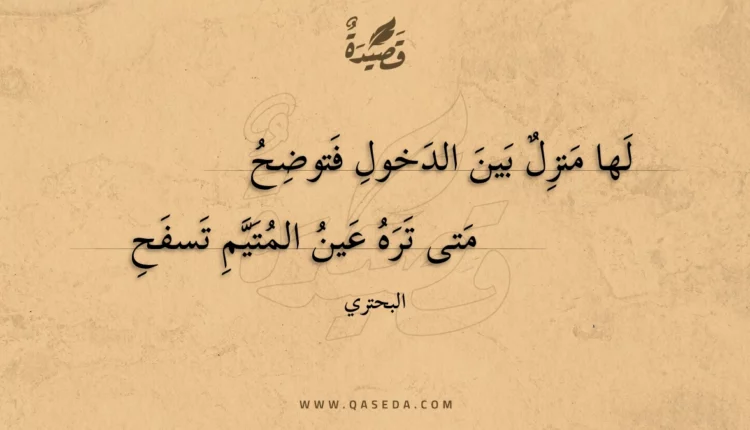 قَصِيْدَةٌ
لَها مَنزِلٌ بَينَ الدَخولِ فَتوضِحُ
مَتى تَرَهُ عَينُ المُتَيَّمِ تَسفَحِ
البحتري
WWW.QASEDA.COM